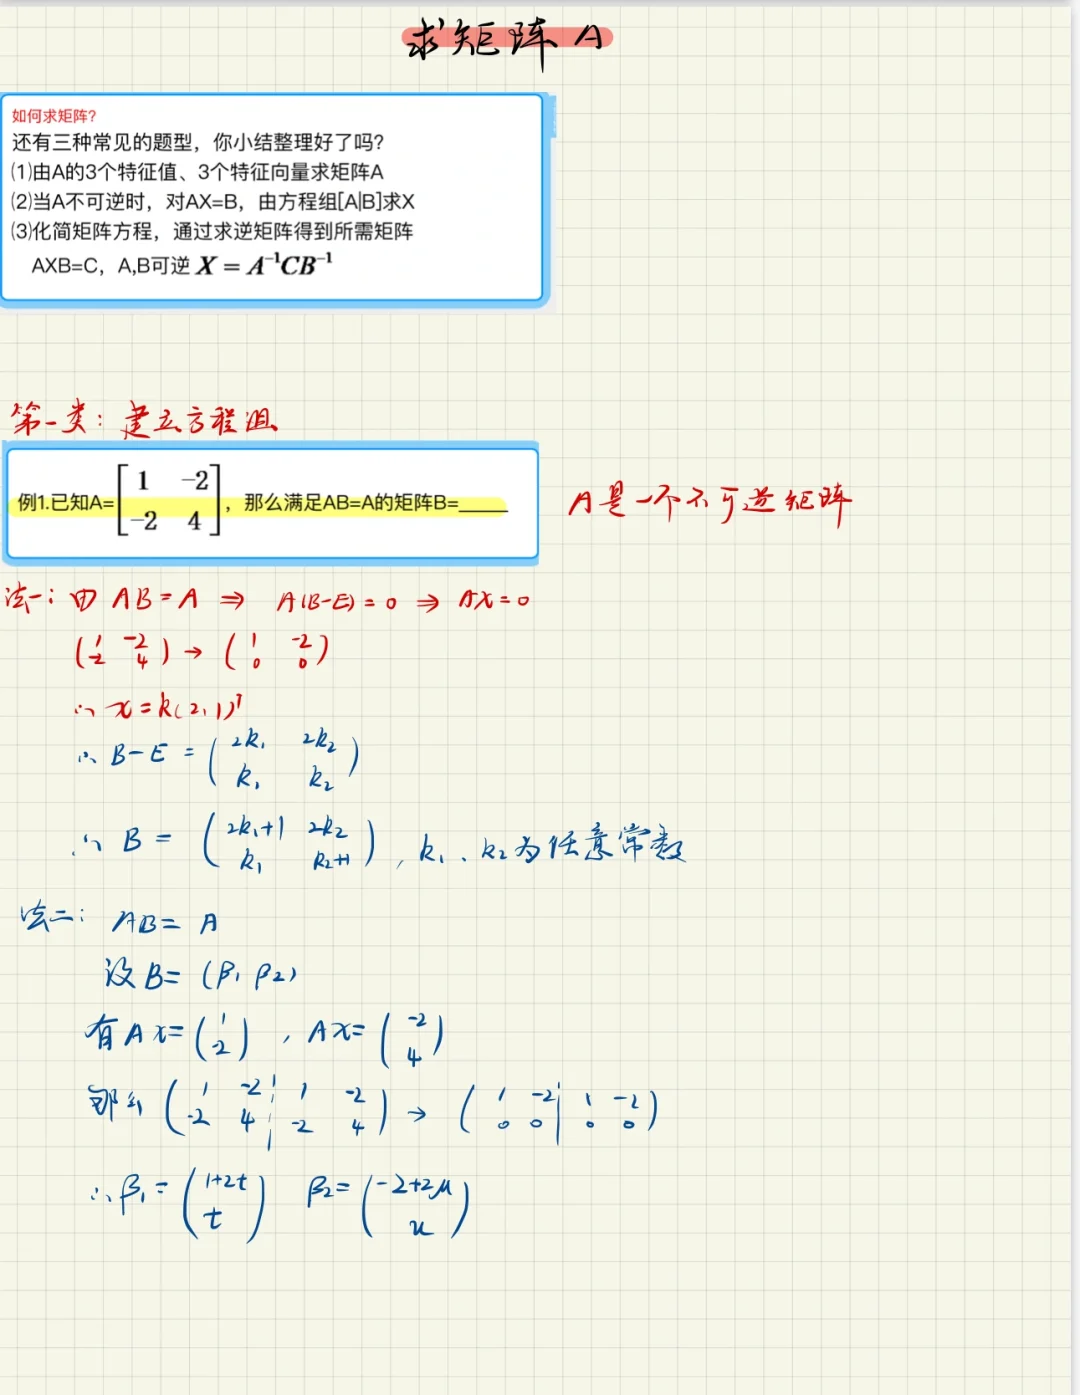 求矩阵 A
如何求矩阵?
还有三种常见的题型，你小结整理好了吗?
(1)由A的3个特征值、3个特征向量求矩阵A
(2)当A不可逆时，对AX=B，由方程组[A|B]求X
(3)化简矩阵方程，通过求逆矩阵得到所需矩阵
AXB=C，A,B可逆 X = A⁻¹CB⁻¹
第一类：建立方程组
例1.已知A=[1 -2; -2 4]，那么满足AB=A的矩阵B=_____
A是一个不可逆矩阵
法一：由 AB=A ⇒ A(B-E)=0 ⇒ AX=0
(1 -2; -2 4) → (1 -2; 0 0)
∴ x=k(2,1)ᵀ
∴ B-E = (2k₁ 2k₂; k₁ k₂)
∴ B = (2k₁+1 2k₂; k₁ k₂+1)，k₁、k₂为任意常数
法二：AB= A
设B= (β₁ β₂)
有Ax=(1; -2)，Ax=(-2; 4)
那么(1 -2 ¦ 1 -2; -2 4 ¦ -2 4) → (1 -2 | 1 -2; 0 0 | 0 0)
∴β₁=(1+2t; t) β₂=(-2+2u; u)